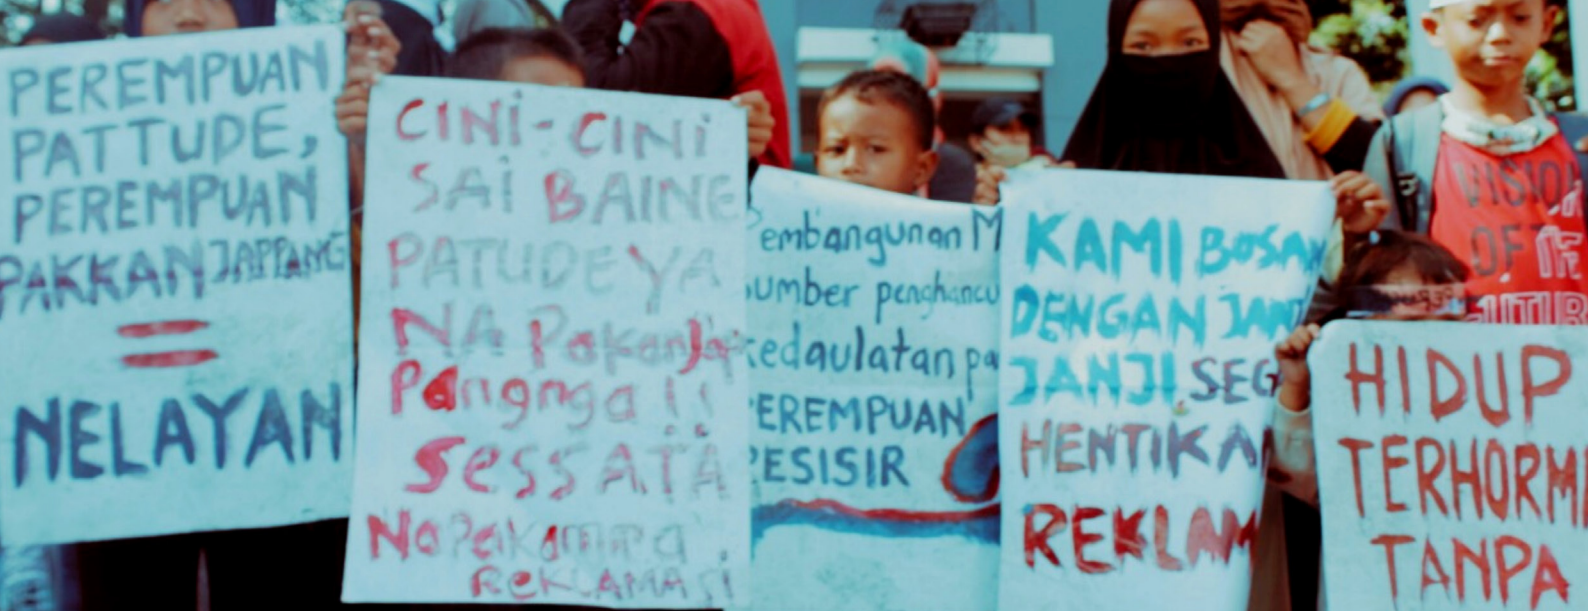 PEREMPUAN
PATTUDE,
PEREMPUAN
PAKKANJAPPANG
=
NELAYAN
CINI-CINI
SAI BAINE
PATUDEYA
NA PakanJap
Pangnga!!
SESSATA
NaPakamma
REKLAMASi
embangunan M
umber penghancu
kedaulatan pa
PEREMPUAN
PESISIR
KAMI BOSAN
DENGAN JANJ
JANJI. SEG
HENTIKA
REKLAM
HIDUP
TERHORM
TANPA
VISION
OF